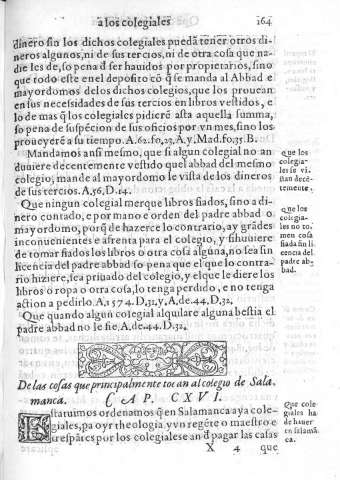 a los colegiales
164
dinero sin los dichos colegiales puedã tener otros di-
neros algunos, ni de sus tercios, ni de otra cosa que na-
die les de, so pena d̃ ser hauidos por propietarios, sino
que todo este en el deposito cõ q̃ se manda al Abbad e
mayordomos de los dichos colegios, que los prouean
en sus necessidades de sus tercios en libros vestidos, e
lo de mas q̃ los colegiales pidierẽ asta aquella summa,
so pena de suspẽcion de sus oficios por vn mes, sino los
proueyerẽ a su tiempo. A. 62. fo, 23, A y, Mad. fo. 35. B.
Mandamos ansi mesmo, que si algun colegial no an
duuiere decentemente vestido quel abbad del mesmo
colegio, mande al mayordomo le vista de los dineros
de sus tercios. A, 56, D. 14.
Que ningun colegial merque libros fiados, sino a di-
nero contado, e por mano e orden del padre abbad o
mayordomo, porq̃ de hazerce lo contrario, ay grãdes
inconuenientes e afrenta para el colegio, y si huuiere
de tomar fiados los libros o otra cosa alguna, no sea sin
licencia del padre abbad so pena que el que lo contra-
rio hiziere, sea priuado del colegio, y el que le diere los
libros o ropa o otra cosa, lo tenga perdido, e no tenga
action a pedirlo. A, 1574. D, 32, y, A, de. 44. D, 32,
Que quando algun colegial alquilare alguna bestia el
padre abbad no le fie. A, de. 44. D. 32,
que los
colegia-
les se vi
stan decẽ-
temente.
que los
colegia-
les no to-
men cosa
fiada sin li
cencia del
padre ab-
bad.
De las cosas que principalmente tocan al colegio de Sala
manca. CAP. CXVI.
Estatuimos ordenamos q̃ en Salamanca aya cole-
giales, pa oyr theologia y vn regẽte o maestro e
q̃ respãrcs por los colegiales e an d̃ pagar las casas
Que cole
giales ha
de hauer
en salamã
ca.
X 4 que